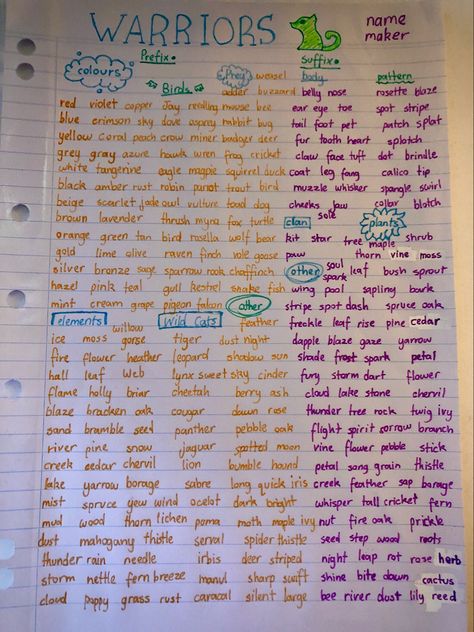 WARRIORS name maker
Prefix• Suffix•
colours Birds Prey weasel body pattern
adder buzzard belly nose rosette blaze
red violet copper Jay mouse bee ear eye toe spot stripe
blue crimson sky dove osprey rabbit bug tail foot pet patch splat
yellow coral peach crow miner badger deer fur tooth heart splotch
grey gray azure hawk wren frog cricket claw face tuft dot brindle
white tangerine eagle magpie squirrel duck coat leg fang calico tip
black amber rust robin parrot trout bird muzzle whisker spangle swirl
beige scarlet jade owl vulture toad dog cheeks jaw collar blotch
brown lavender thrush myna fox turtle clan sole plants
orange green tan bird rosella wolf bear kit star tree maple shrub
gold lime olive raven finch vole goose paw thorn vine moss
silver bronze sage sparrow rook chaffinch other soul spark leaf bush sprout
hazel pink teal gull kestrel snake fish wing pool sapling bark
mint cream grape pigeon falcon other stripe spot dash spruce oak
elements willow Wild Cats feather freckle leaf rise pine cedar
ice moss gorse tiger dust night dapple blaze gaze yarrow
fire flower heather leopard shadow sun shade frost spark petal
hall leaf web lynx sweet sky cinder fury storm dart flower
flame holly briar cheetah berry ash cloud lake stone chervil
blaze bracken oak cougar dawn rose thunder tree rock twig ivy
sand bramble seed panther pebble oak flight spirit sorrow branch
river pine snow jaguar spotted moon vine flower pebble stick
creek cedar chervil lion bumble hound petal song grain thistle
lake yarrow borage sabre long quick iris creek feather sap borage
mist spruce yew wind ocelot dark bright whisper tall cricket fern
mud wood thorn lichen puma moth maple ivy nut fire oak prickle
dust mahogany thistle serval spider thistle seed step wood roots
thunder rain needle irbis deer striped night leap rot rose herb
storm nettle fern breeze manul sharp swift shine bite dawn cactus
cloud poppy grass rust caracal silent large bee river dust lily reed